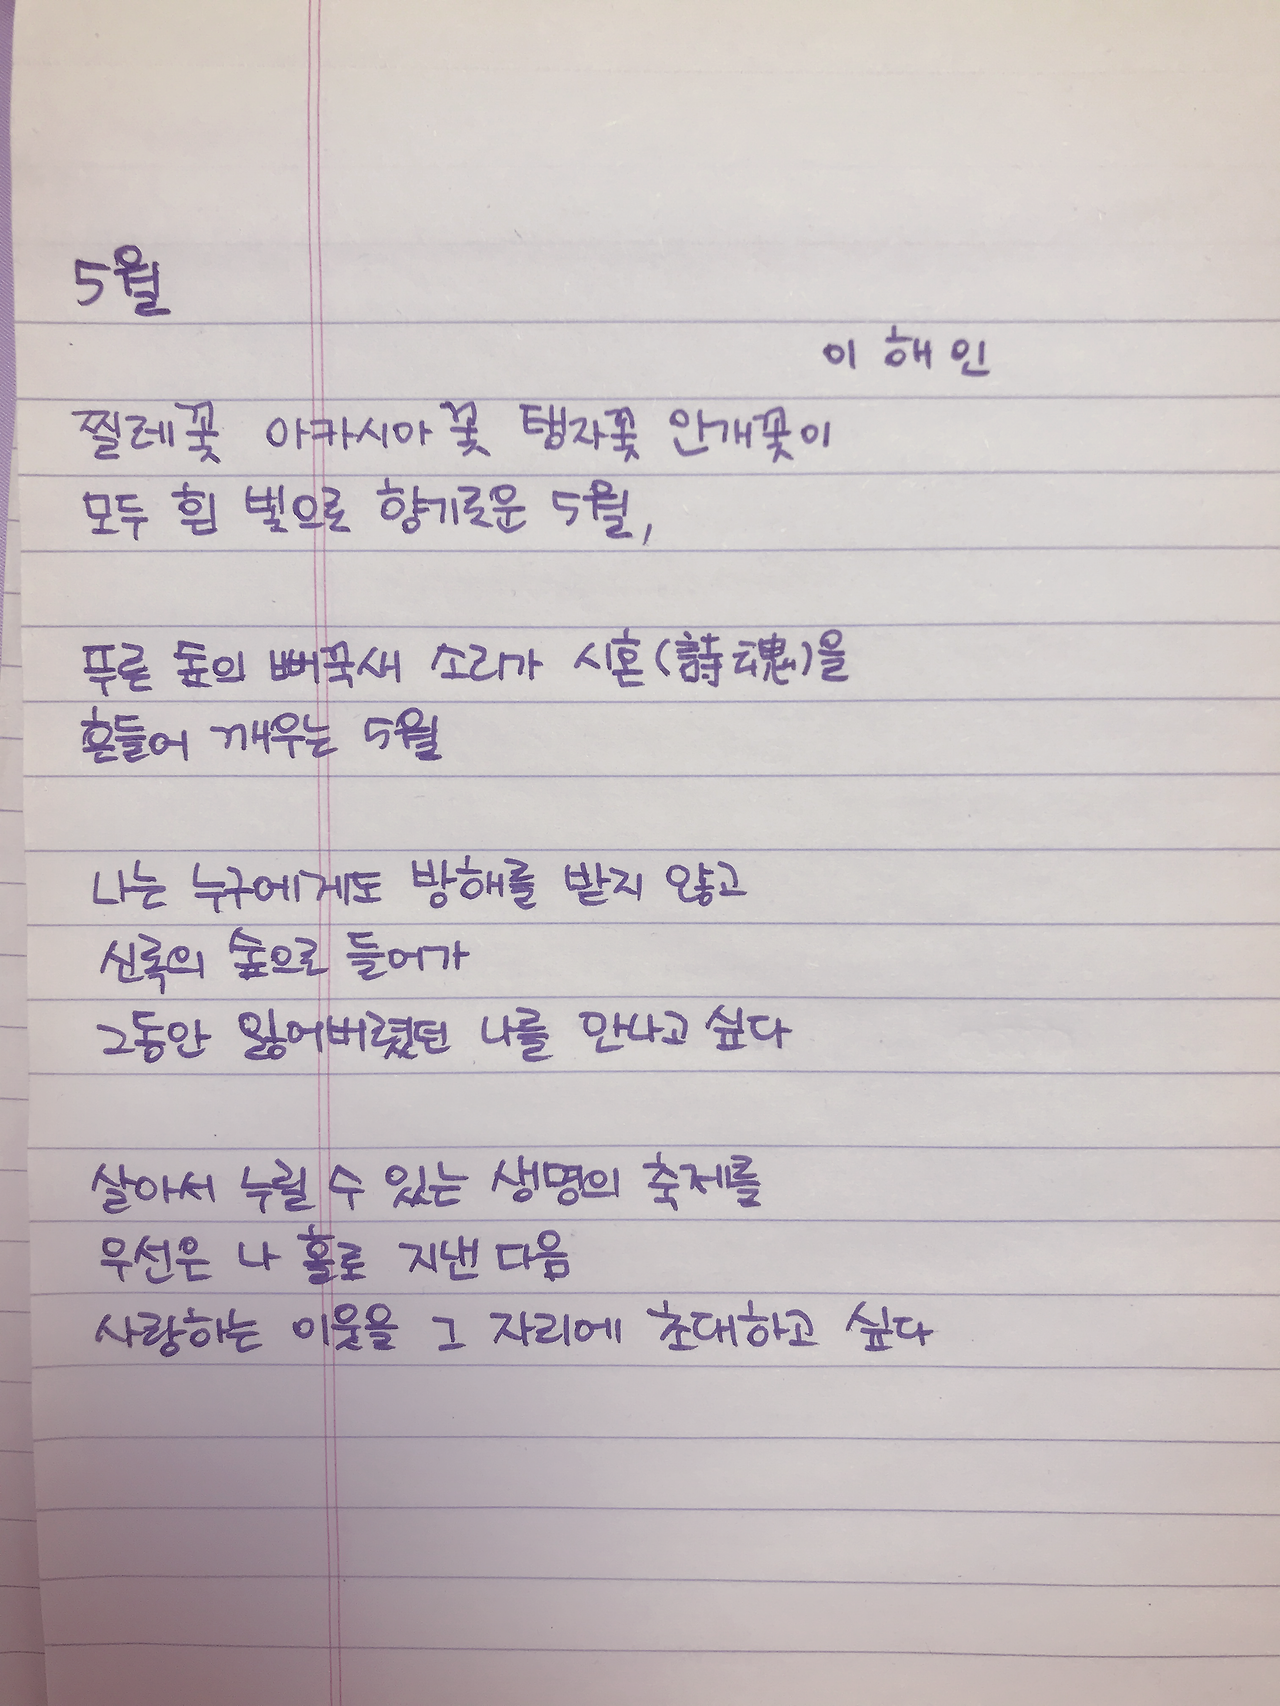 5월
이해인
찔레꽃 아카시아꽃 탱자꽃 안개꽃이
모두 흰 빛으로 향기로운 5월,
푸른 숲의 뻐꾹새 소리가 시혼(詩魂)을
흔들어 깨우는 5월
나는 누구에게도 방해를 받지 않고
신록의 숲으로 들어가
그동안 잃어버렸던 나를 만나고 싶다
살아서 누릴 수 있는 생명의 축제를
우선은 나 홀로 지낸 다음
사랑하는 이웃을 그 자리에 초대하고 싶다